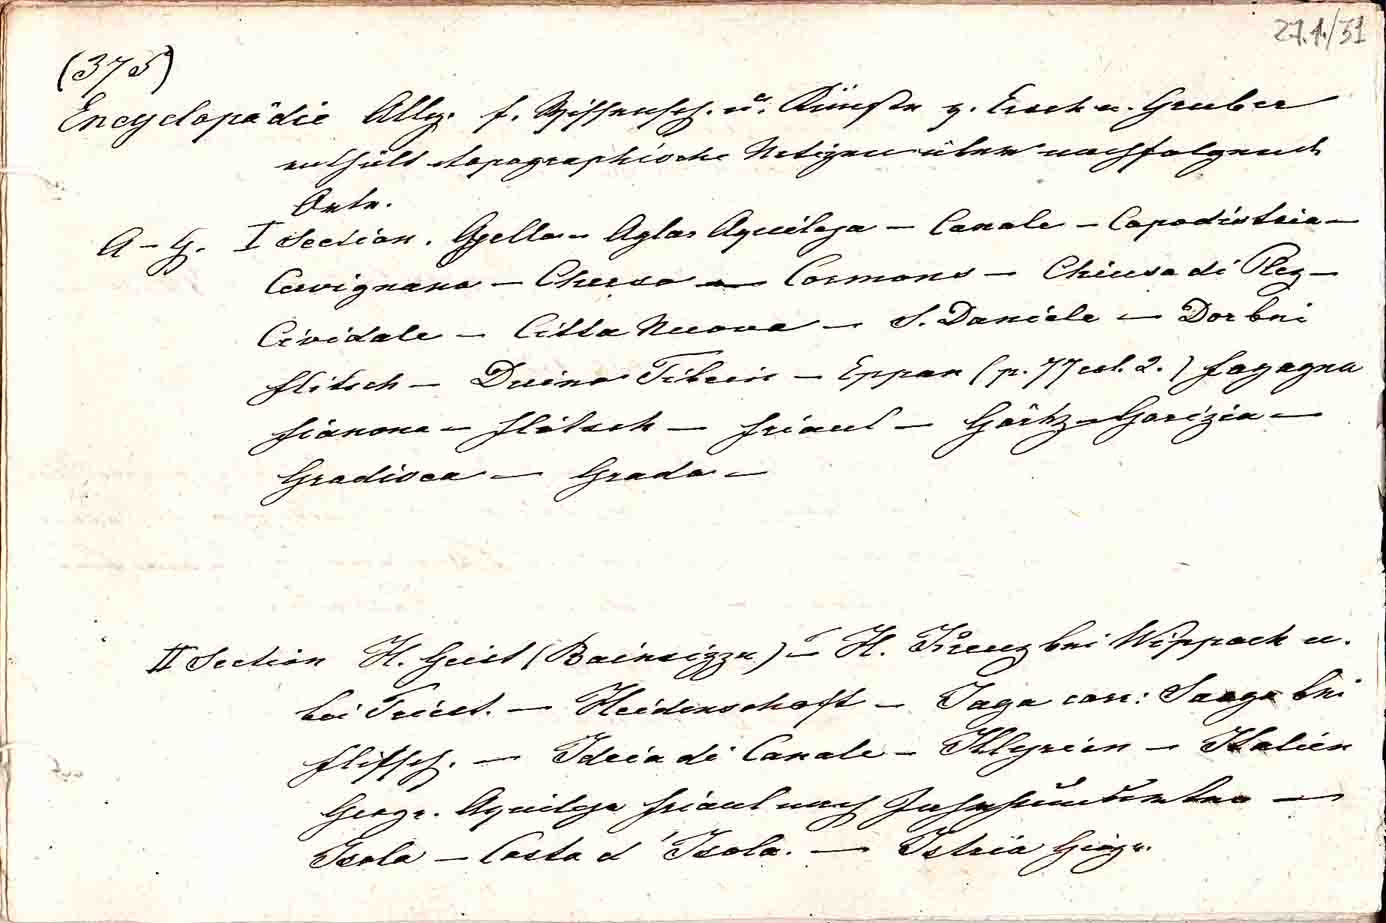 27.1./31
(375)
Encyclopädie Allg. f. Wissensch. u. Künste v. Ersch u. Gruber
enthält topographische Notizen über nachfolgende
Orte.
A – G. I Section. Ajello – Aglar Aquileja – Canale – Capodistria –
Cervignano – Cherso – Cormons – Chiusa di Plez –
Cividale – Citta Nuova – S. Daniele – Dor bei
Flitsch – Duino Tibein – Eppan (p. 77 col. 2.) Fagagna
Fianona – Flitsch – Friaul – Görtz – Gorizia –
Gradisca – Grado –
II Section H. Geist (Bainsizza) – H. Kreuz bei Wippach u.
bei Triest. – Heidenschaft – Jaga corr: Saaga bei
Flitsch. – Idria di Canale – Illyrien – Italien
Geogr. Aquileja Friaul nach Jahrhunderten –
Isola – Costa d'Isola. – Istria